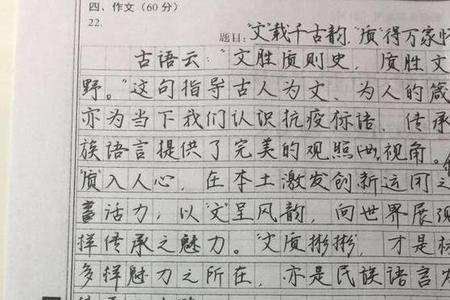 四、作文(60分)
22.
题目:“文”载千古韵,“质”得万家怀
古语云:“文胜质则史,质胜文
野。”这句指导古人为文、为人的箴
亦为当下我们认识抗疫标语,传承
族语言提供了完美的观照视角。
“质”入人心,在本土激发创新运用之
蓄活力,以“文”呈风韵,向世界展现
样传承之魅力。“文质彬彬”,才是标
多样魅力之所在,亦是民族语言